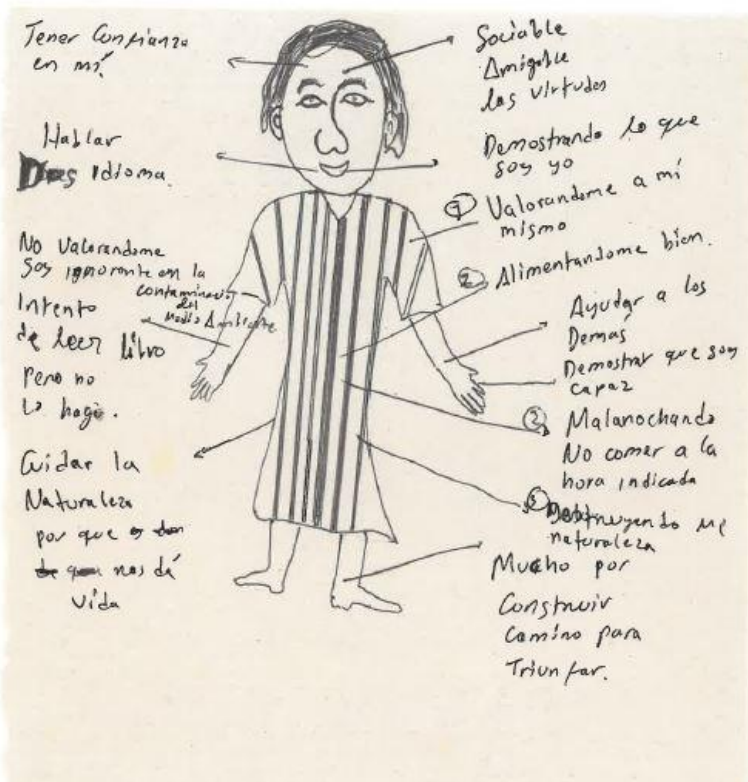 Tener Confianza
en mí.
Hablar
Dos idioma.
No Valorandome
Soy ignorante en la
contaminacio
del
Medio Ambiente
Intento
de leer libro
pero no
lo hago.
Cuidar la
Naturaleza
por que es don
de que nos dá
vida
Sociable
Amigable
las virtudes
Demostrando lo que
soy yo
Valorandome a mí
mismo
2 Alimentandome bien.
Ayudar a los
Demás
Demostrar que soy
capaz
Malanochando
No comer a la
hora indicada
naturaleza
Mucho por
Construir
Camino para
Triunfar.